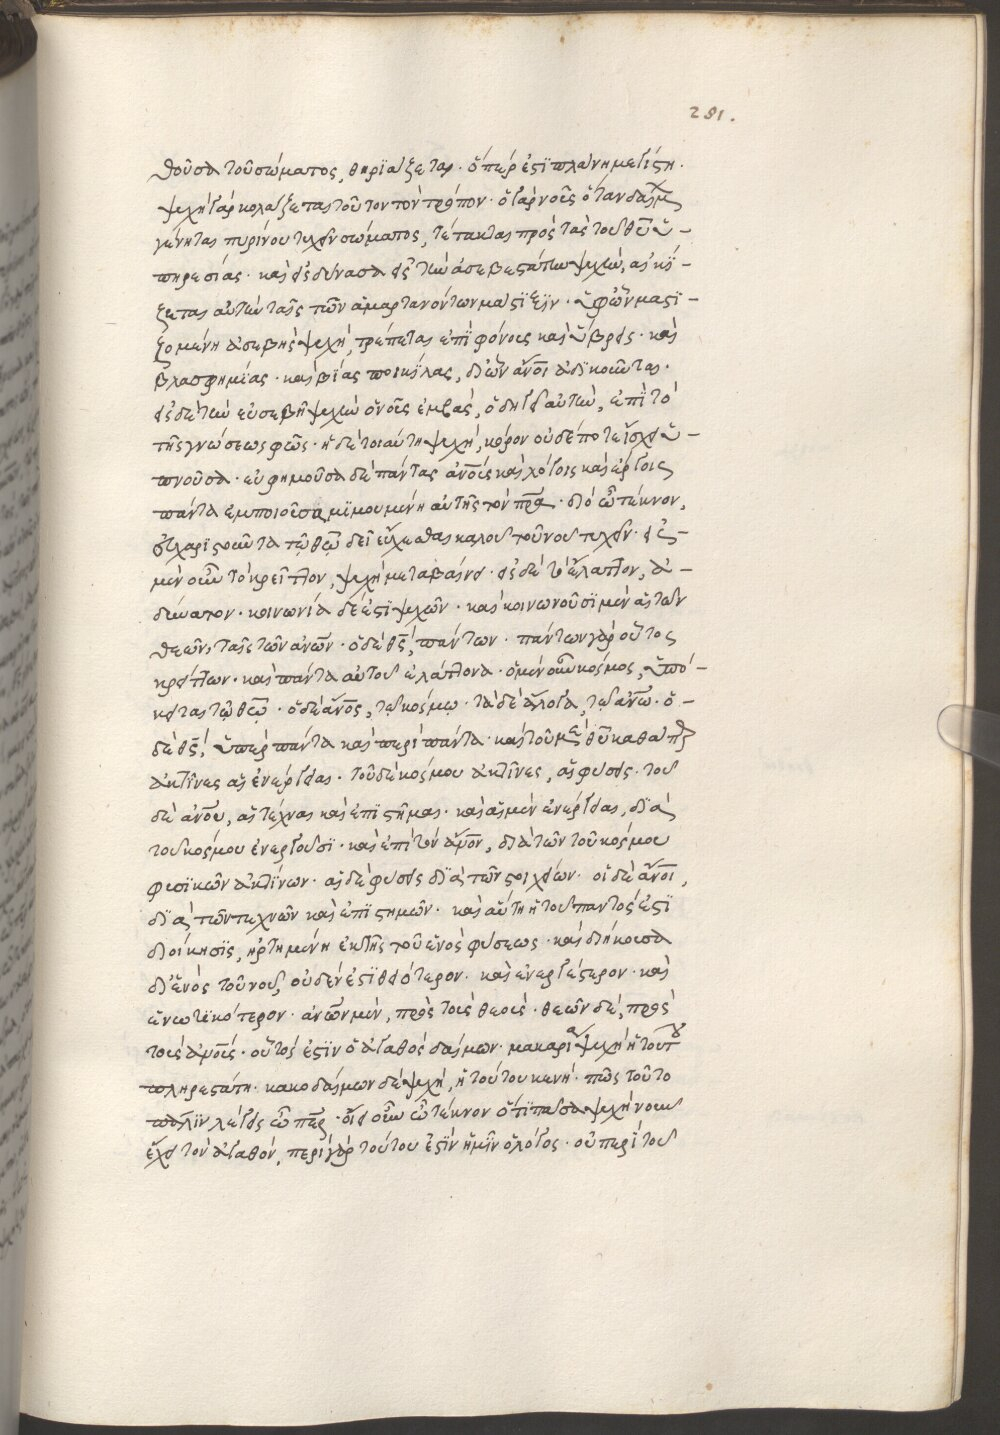 281.
θοῦσα τοῦ σώματος, θηριάζεται. ὅπερ ἐστὶ πλάνη μεγίστη.
ψυχὴ γὰρ κολάζεται τοῦτον τὸν τρόπον. ὁ γὰρ νοῦς ὅταν δαίμ
γένηται πυρίνου τυχεῖν σώματος, τέτακται πρὸς τὰς τοῦ θῦ ὑ-
πηρεσίας. καὶ εἰσδύνασα εἰς τὴν ἀσεβεστάτην ψυχὴν, αἰκί-
ζεται αὐτὴν ταῖς τῶν ἁμαρτανόντων μάστιξιν. ὑφ' ὧν μαστι-
ζομένη ἀσεβὴς ψυχὴ, τρέπεται ἐπὶ φόνους καὶ ὕβρεις. καὶ
βλασφημίας. καὶ βίας ποικίλας, δι' ὧν ἄνοι ἀδικοῦνται.
εἰς δὲ τὴν εὐσεβῆ ψυχὴν ὁ νοῦς ἐμβὰς, ὁδηγεῖ αὐτὴν, ἐπὶ τὸ
τῆς γνώσεως φῶς. ἡ δὲ τοιαύτη ψυχὴ, κόρον οὐδέποτε ἴσχει ὑ-
πνοῦσα. εὐφημοῦσα δὲ πάντας ἀνοὺς καὶ λόγοις καὶ ἔργοις
πάντα εμποιοῦσα μιμουμένη αὐτῆς τὸν πρα. διὸ ὦ τέκνον,
εὐχαριστοῦντα τῷ θῷ δεῖ εὔχεσθαι καλοῦ τοῦ νοῦ τυχεῖν. εἰς-
μὲν οὖν τὸ κρεῖττον, ψυχὴ μεταβαίνει. εἰς δὲ τὸ ἔλαττον, ἀ-
δύνατον. κοινωνία δέ ἐστι ψυχῶν. καὶ κοινωνοῦσι μὲν αἱ τῶν
θεῶν, ταῖς τῶν ἀνων. ὁ δὲ θς, πάντων. πάντων γὰρ οὗτος
κρείττων. καὶ πάντα αὐτοῦ ἐλάττονα. ὁ μὲν οὖν κόσμος, ὑπό-
κειται τῷ θεῷ. ὁ δὲ ἄνος, τῷ κόσμῳ. τὰ δὲ ἄλογα, τῷ ἀνω. ὁ-
δὲ θς, ὑπὲρ πάντα καὶ περὶ πάντα. καὶ τοῦ μὲν θῦ καθάπερ
ἀκτῖνες αἱ ἐνέργειαι. τοῦ δὲ κόσμου ἀκτῖνες, αἱ φύσεις. τοῦ
δὲ ἀνου, αἱ τέχναι καὶ ἐπιστῆμαι. καὶ αἱ μὲν ἐνέργειαι, διὰ
τοῦ κόσμου ἐνεργοῦσι. καὶ ἐπὶ τὸν ἄνον, διὰ τῶν τοῦ κόσμου
φυσικῶν ἀκτίνων. αἱ δὲ φύσεις διὰ τῶν στοιχείων. οἱ δὲ ἄνοι,
διὰ τῶν τεχνῶν καὶ ἐπιστημῶν. καὶ αὕτη ἡ τοῦ παντὸς ἐστὶ
διοίκησις, ἠρτημένη ἐκ τῆς τοῦ ἑνὸς φύσεως. καὶ διήκουσα
δι' ἑνὸς τοῦ νοῦ, οὗ οὐδέν ἐστι θειότερον. καὶ ἐνεργέστερον. καὶ
ἑνωτικότερον. ἀνων μὲν, πρὸς τοὺς θεοὺς. θεῶν δὲ, πρὸς
τοὺς ἀνους. οὗτός ἐστιν ὁ ἀγαθὸς δαίμων. μακαρία ψυχὴ ἡ τούτου
πληρεστάτη. κακοδαίμων δὲ ψυχὴ, ἡ τούτου κενή. πῶς τοῦτο
πάλιν λέγεις ὦ περ. οἴει οὖν ὦ τέκνον ὅτι πᾶσα ψυχὴ νοῦν
ἔχει τὸν ἀγαθόν, περὶ γὰρ τούτου ἐστὶν ἡμῖν ὁ λόγος. οὐ περὶ τοῦ